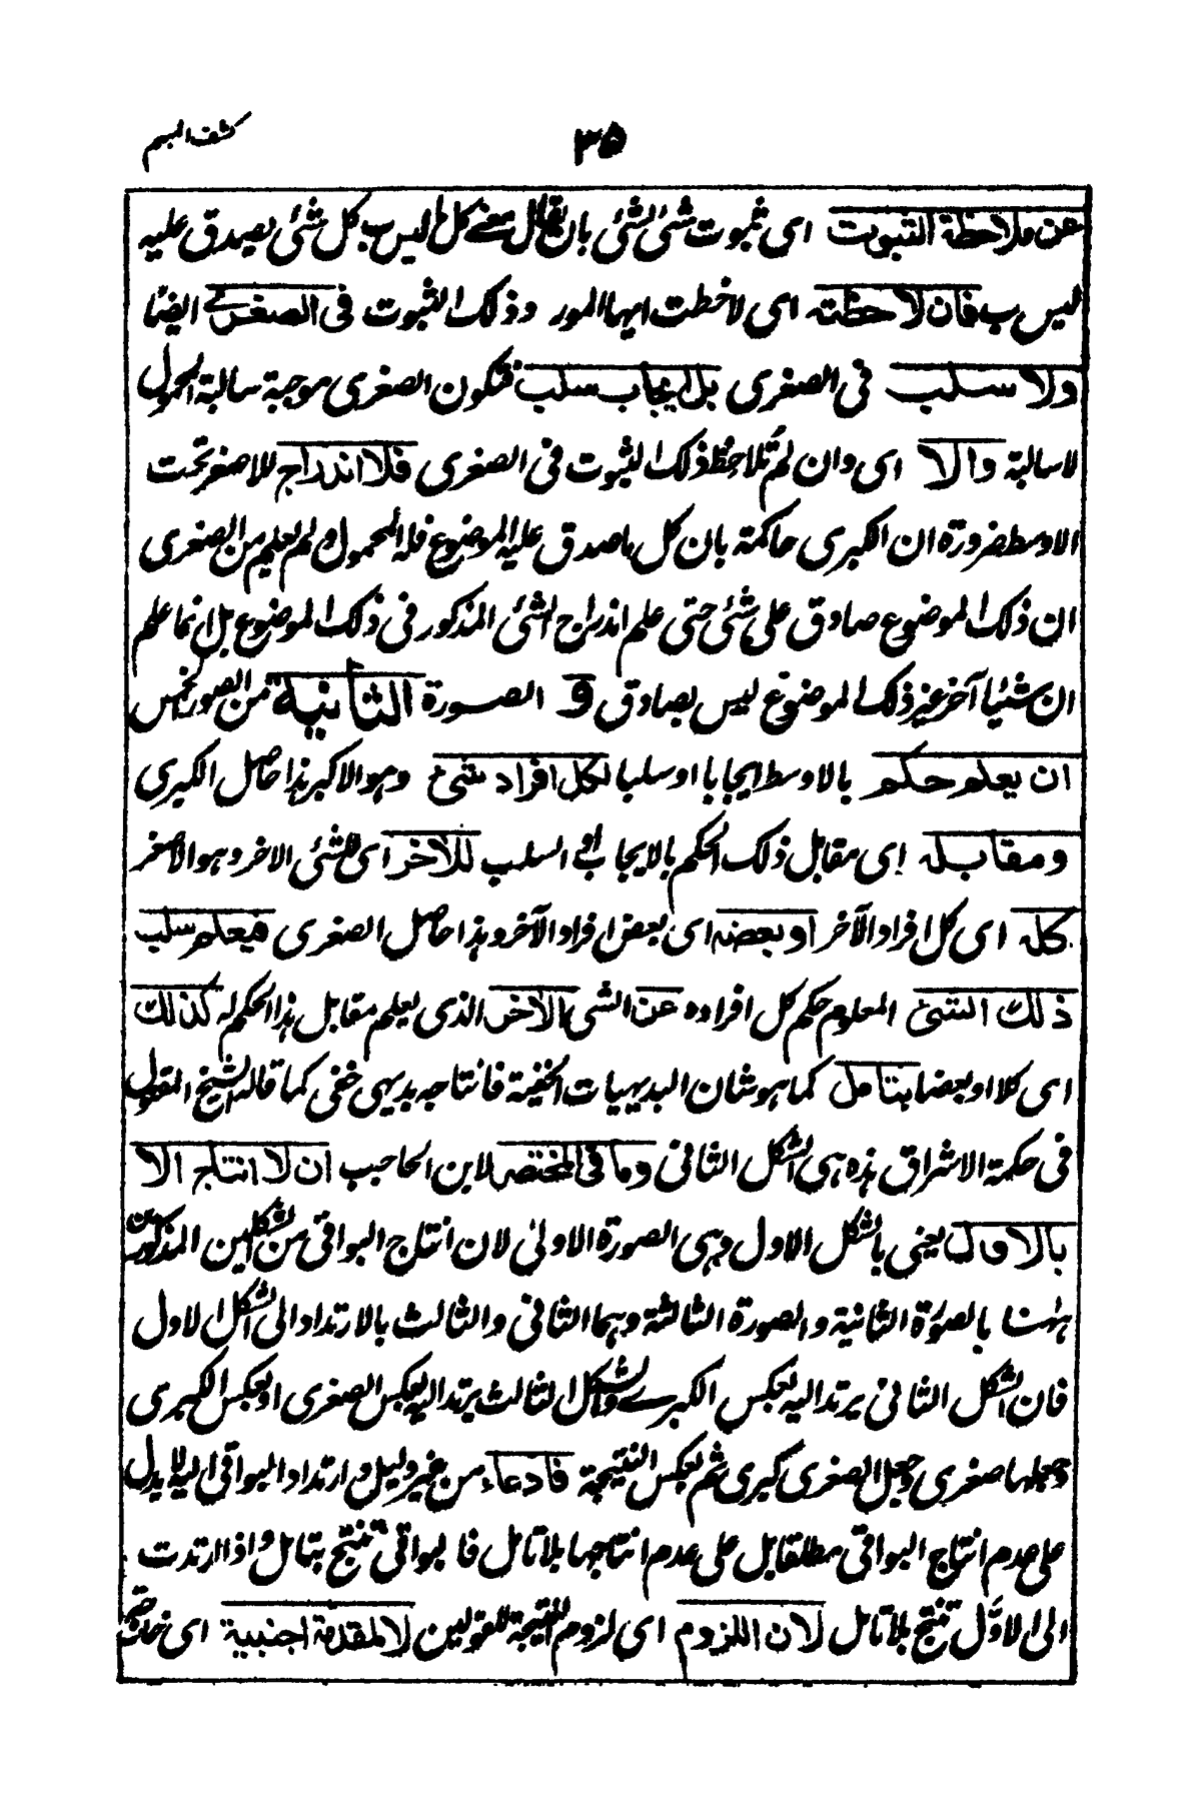 كشف المبهم
٣٥
عن ملاحظة الثبوت اى ثبوت شئ لشئ بان يقال معنى كل ما ليس ب كل شئ يصدق عليه
ليس ب فان لاحظته اى لاحظت ايها المورد ذلك الثبوت فى الصغرى ايضا
ولا سلب فى الصغرى بل ايجاب سلب فتكون الصغرى موجبة سالبة المحمول
لا سالبة والا اى وان لم تلاحظ ذلك الثبوت فى الصغرى فلا اندراج للاصغر تحت
الاوسط ضرورة ان الكبرى حاكمة بان كل ما صدق عليه الموضوع فله المحمول ولم يعلم من الصغرى
ان ذلك الموضوع صادق على شئ حتى علم اندراج الشئ المذكور فى ذلك الموضوع بل انما علم
ان شئيا آخر غير ذلك الموضوع ليس بصادق و الصورة الثانية من الصور الخمس
ان يعلم حكم بالاوسط ايجابا او سلبا لكل افراد شئ وهو الاكبر هذا حاصل الكبرى
ومقابله اى مقابل ذلك الحكم بالايجاب او السلب للآخر اى للشئ الاخر وهو الاصغر
كله اى كل افراد الآخر او بعضه اى بعض افراد الآخر وهذا حاصل الصغرى فيعلم سلب
ذلك الشئ المعلوم حكم كل افراده عن الشى الآخر الذى يعلم مقابل هذا الحكم له كذلك
اى كلا او بعضا بتامل كما هو شان البديهيات الخفية فانتاجه بديهى خفى كما قاله الشيخ المقتول
فى حكمة الاشراق هذه هى الشكل الثانى وما فى المختصر لابن الحاجب ان لا انتاج الا
بالاول يعنى بالشكل الاول وهى الصورة الاولى لان انتاج البواقى من الشكلين المذكورين
ههنا بالصورة الثانية والصورة الثالثة وهما الثانى والثالث بالارتداد الى الشكل الاول
فان الشكل الثانى يرتد اليه بعكس الكبرى والشكل الثالث يرتد اليه بعكس الصغرى او بعكس الكبرى
وجعلها صغرى وجعل الصغرى كبرى ثم بعكس النتيجة فادعاء من غير دليل وارتداد البواقى اليه لا يدل
على عدم انتاج البواقى مطلقا بل على عدم انتاجها بلا تامل فالبواقى تنتج بتامل واذا ارتدت
الى الاول تنتج بلا تامل لان اللزوم اى لزوم النتيجة للقولين لا لمقدمة اجنبية اى خارجة